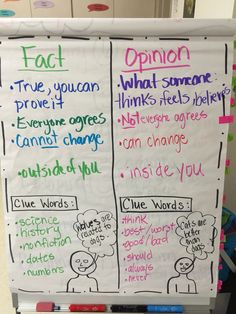 Fact
• True, you can
prove it
• Everyone agrees
• Cannot change
• outside of you
Clue Words:
• science
• history
• nonfiction
• dates
• numbers
Wolves are
related to
dogs.
Opinion
• What someone:
thinks, feels, believes
• Not everyone agrees
• can change
• inside you
Clue Words:
• think
• best/worst
• good/bad
• should
• always
• never
Cats are
better than
dogs.